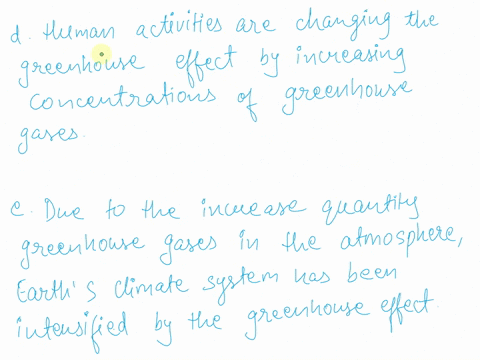 d. Human activities are changing the
greenhouse effect by increasing
concentrations of greenhouse
gases.
e. Due to the increase quantity
greenhouse gases in the atmosphere,
Earth's climate system has been
intensified by the greenhouse effect.